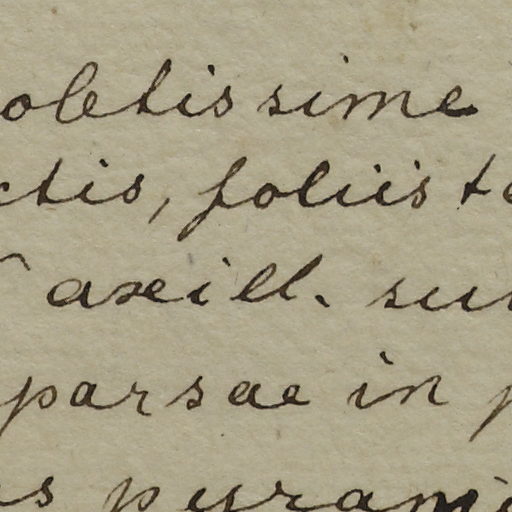 oletissime
ctis, foliis te
axill. su
parsae in p
s pyrami